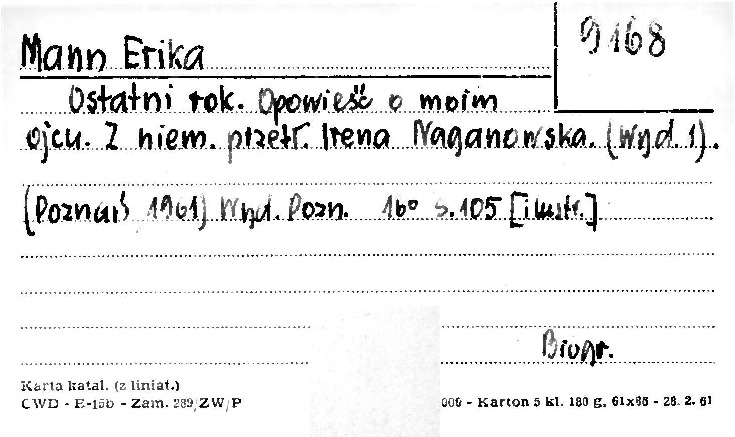 9168
Mann Erika
Ostatni rok. Opowieść o moim
ojcu. Z niem. przetł. Irena Naganowska. (Wyd. 1).
(Poznań 1961) Wyd. Pozn. 16° s.105 [ilustr.]
Biogr.
Karta katal. (z liniat.)
CWD - E-15b - Zam. 289/ZW/P 000 - Karton 5 kl. 180 g, 61x86 - 28. 2. 61